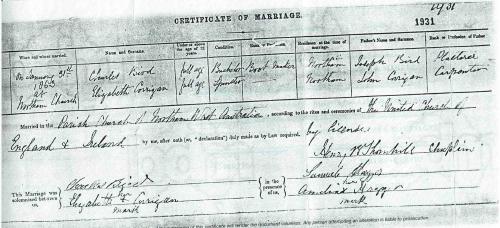 CERTIFICATE OF MARRIAGE.
1931
When and where married.
Name and Surname.
Under or above the age of 21 years
Condition.
Rank or Profession
Residence at the time of marriage.
Father's Name and Surname.
Rank or Profession of Father
On January 31st
1863
at
Northam Church
Charles Bird
full age
Bachelor
Boot Maker
Northam
Joseph Bird
Plasterer
Elizabeth Corrigan
full age
Spinster
Northam
John Corrigan
Carpenter
Married in the Parish Church of Northam West Australia, according to the rites and ceremonies of the United Church of
England & Ireland by me, after oath (or, "declaration") duly made as by Law required. by License.
Chaplain
This Marriage was solemnised between us,
Charles Bird
Elizabeth her x Corrigan
mark
in the presence of us,
Samuel
Amelia her x
mark
of this certificate will render the document valueless. Any person attempting an alteration is liable to prosecution.